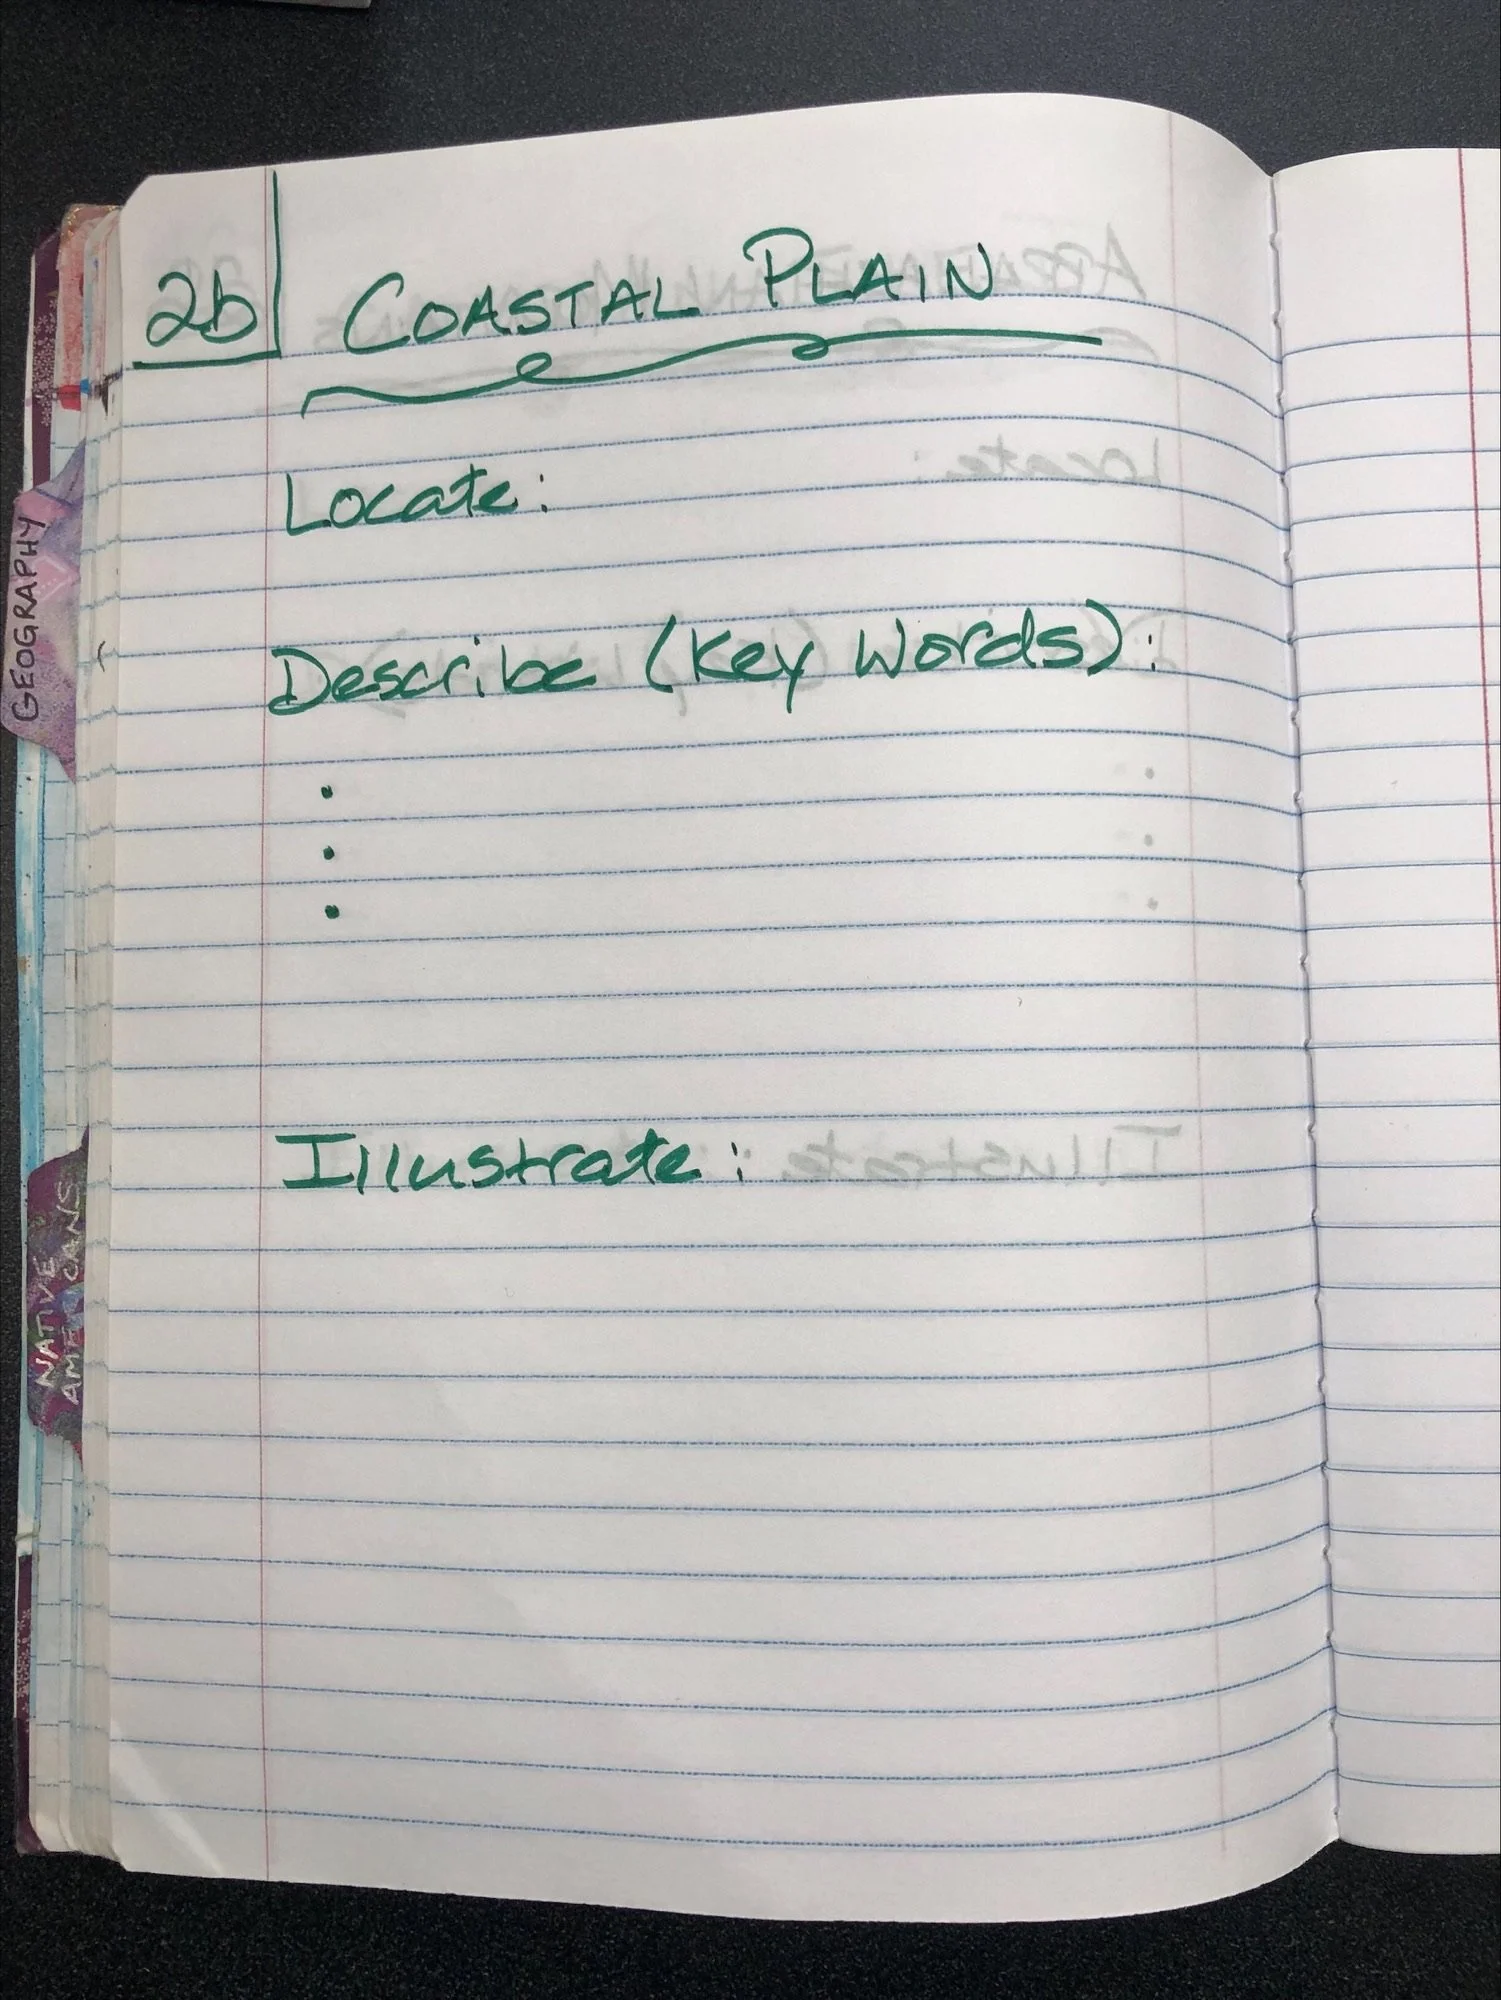 2b
COASTAL PLAIN
Locate:
Describe (Key Words):
•
•
•
Illustrate:
GEOGRAPHY
NATIVE
Locate:
Illustrate